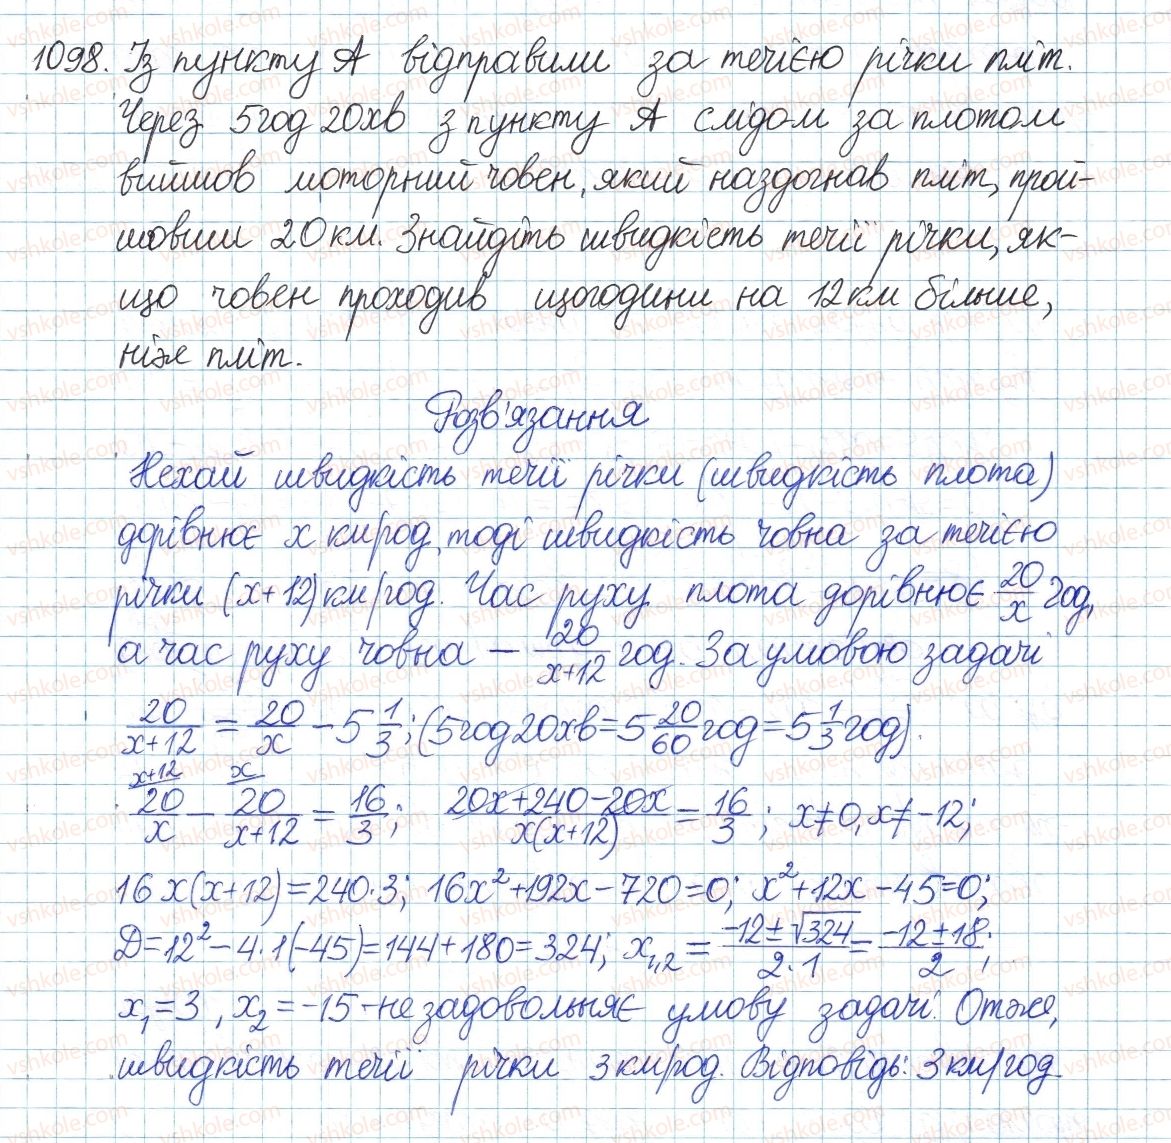 1098. Із пункту А відправили за течією річки пліт.
Через 5год 20хв з пункту А слідом за плотом
вийшов моторний човен, який наздогнав пліт, прой-
шовши 20км. Знайдіть швидкість течії річки, як-
що човен проходив щогодини на 12км більше,
ніж пліт.
Розв'язання
Нехай швидкість течії річки (швидкість плота)
дорівнює x км/год, тоді швидкість човна за течією
річки (x+12) км/год. Час руху плота дорівнює 20/x год,
а час руху човна – 20/(x+12) год. За умовою задачі
20/(x+12) = 20/x – 5 1/3; (5год 20хв = 5 20/60 год = 5 1/3 год).
x+12 x
20/x – 20/(x+12) = 16/3; (20x+240–20x)/(x(x+12)) = 16/3; x≠0, x≠–12;
16x(x+12)=240·3; 16x²+192x–720=0; x²+12x–45=0;
D=12²–4·1(–45)=144+180=324; x₁,₂ = (–12±√324)/(2·1) = (–12±18)/2;
x₁=3, x₂=–15 – не задовольняє умову задачі. Отже,
швидкість течії річки 3км/год. Відповідь: 3км/год